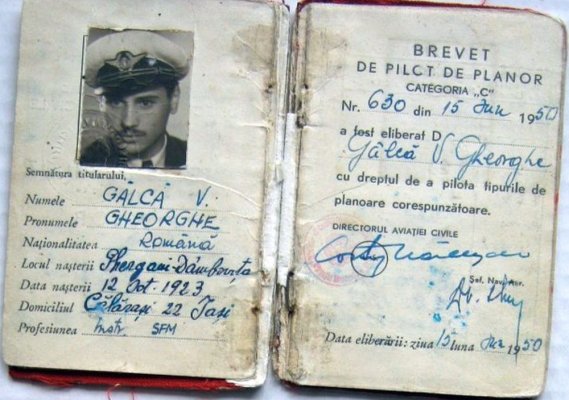 Semnătura titularului,
Numele GÂLCĂ V.
Pronumele GHEORGHE
Naționalitatea Română
Locul nașterii Ghergani-Dâmbovița
Data nașterii 12 Oct. 1923
Domiciliul Călărași 22 Iași
Profesiunea Instr SFM
BREVET
DE PILOT DE PLANOR
CATEGORIA „C"
Nr. 630 din 15 Iun 1950
a fost eliberat D
Gâlcă V. Gheorghe
cu dreptul de a pilota tipurile de
planoare corespunzătoare.
DIRECTORUL AVIAȚIEI CIVILE
Șef. Nav. Aer.
Data eliberării: ziua 15 luna Iun 1950